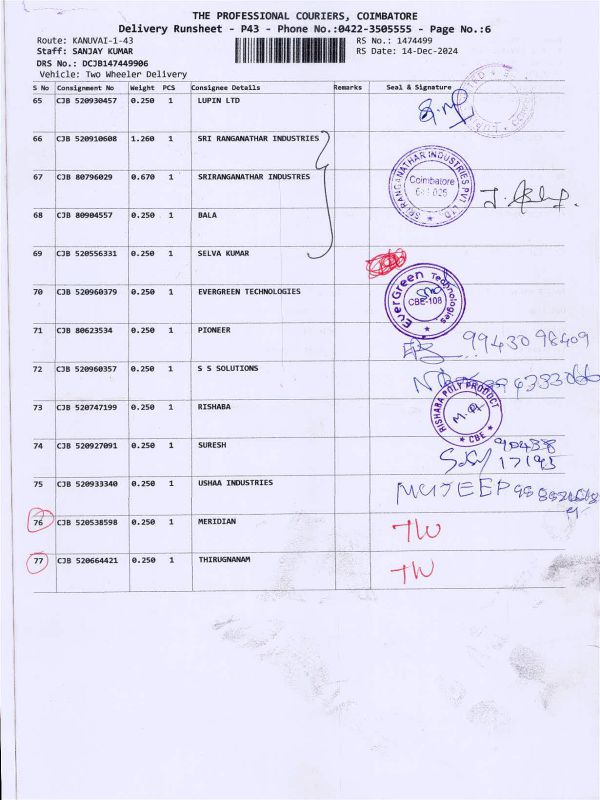 THE PROFESSIONAL COURIERS, COIMBATORE
Delivery Runsheet - P43 - Phone No.:0422-3505555 - Page No.:6
Route: KANUVAI-1-43 RS No.: 1474499
Staff: SANJAY KUMAR RS Date: 14-Dec-2024
DRS No.: DCJB147449906
Vehicle: Two Wheeler Delivery
S No Consignment No Weight PCS Consignee Details Remarks Seal & Signature
65 CJB 520930457 0.250 1 LUPIN LTD
66 CJB 520910608 1.260 1 SRI RANGANATHAR INDUSTRIES
SRI RANGANATHAR INDUSTRIES PVT LTD
Coimbatore
67 CJB 80796029 0.670 1 SRIRANGANATHAR INDUSTRES
68 CJB 80904557 0.250 1 BALA
69 CJB 520556331 0.250 1 SELVA KUMAR
70 CJB 520960379 0.250 1 EVERGREEN TECHNOLOGIES
EverGreen Technologies
CBE-108
71 CJB 80623534 0.250 1 PIONEER
9943098409
72 CJB 520960357 0.250 1 S S SOLUTIONS
73 CJB 520747199 0.250 1 RISHABA
RISHABA POLY PRODUCT
CBE
74 CJB 520927091 0.250 1 SURESH
90438
17195
75 CJB 520933340 0.250 1 USHAA INDUSTRIES
MUJEEP
76 CJB 520538598 0.250 1 MERIDIAN TW
77 CJB 520664421 0.250 1 THIRUGNANAM TW